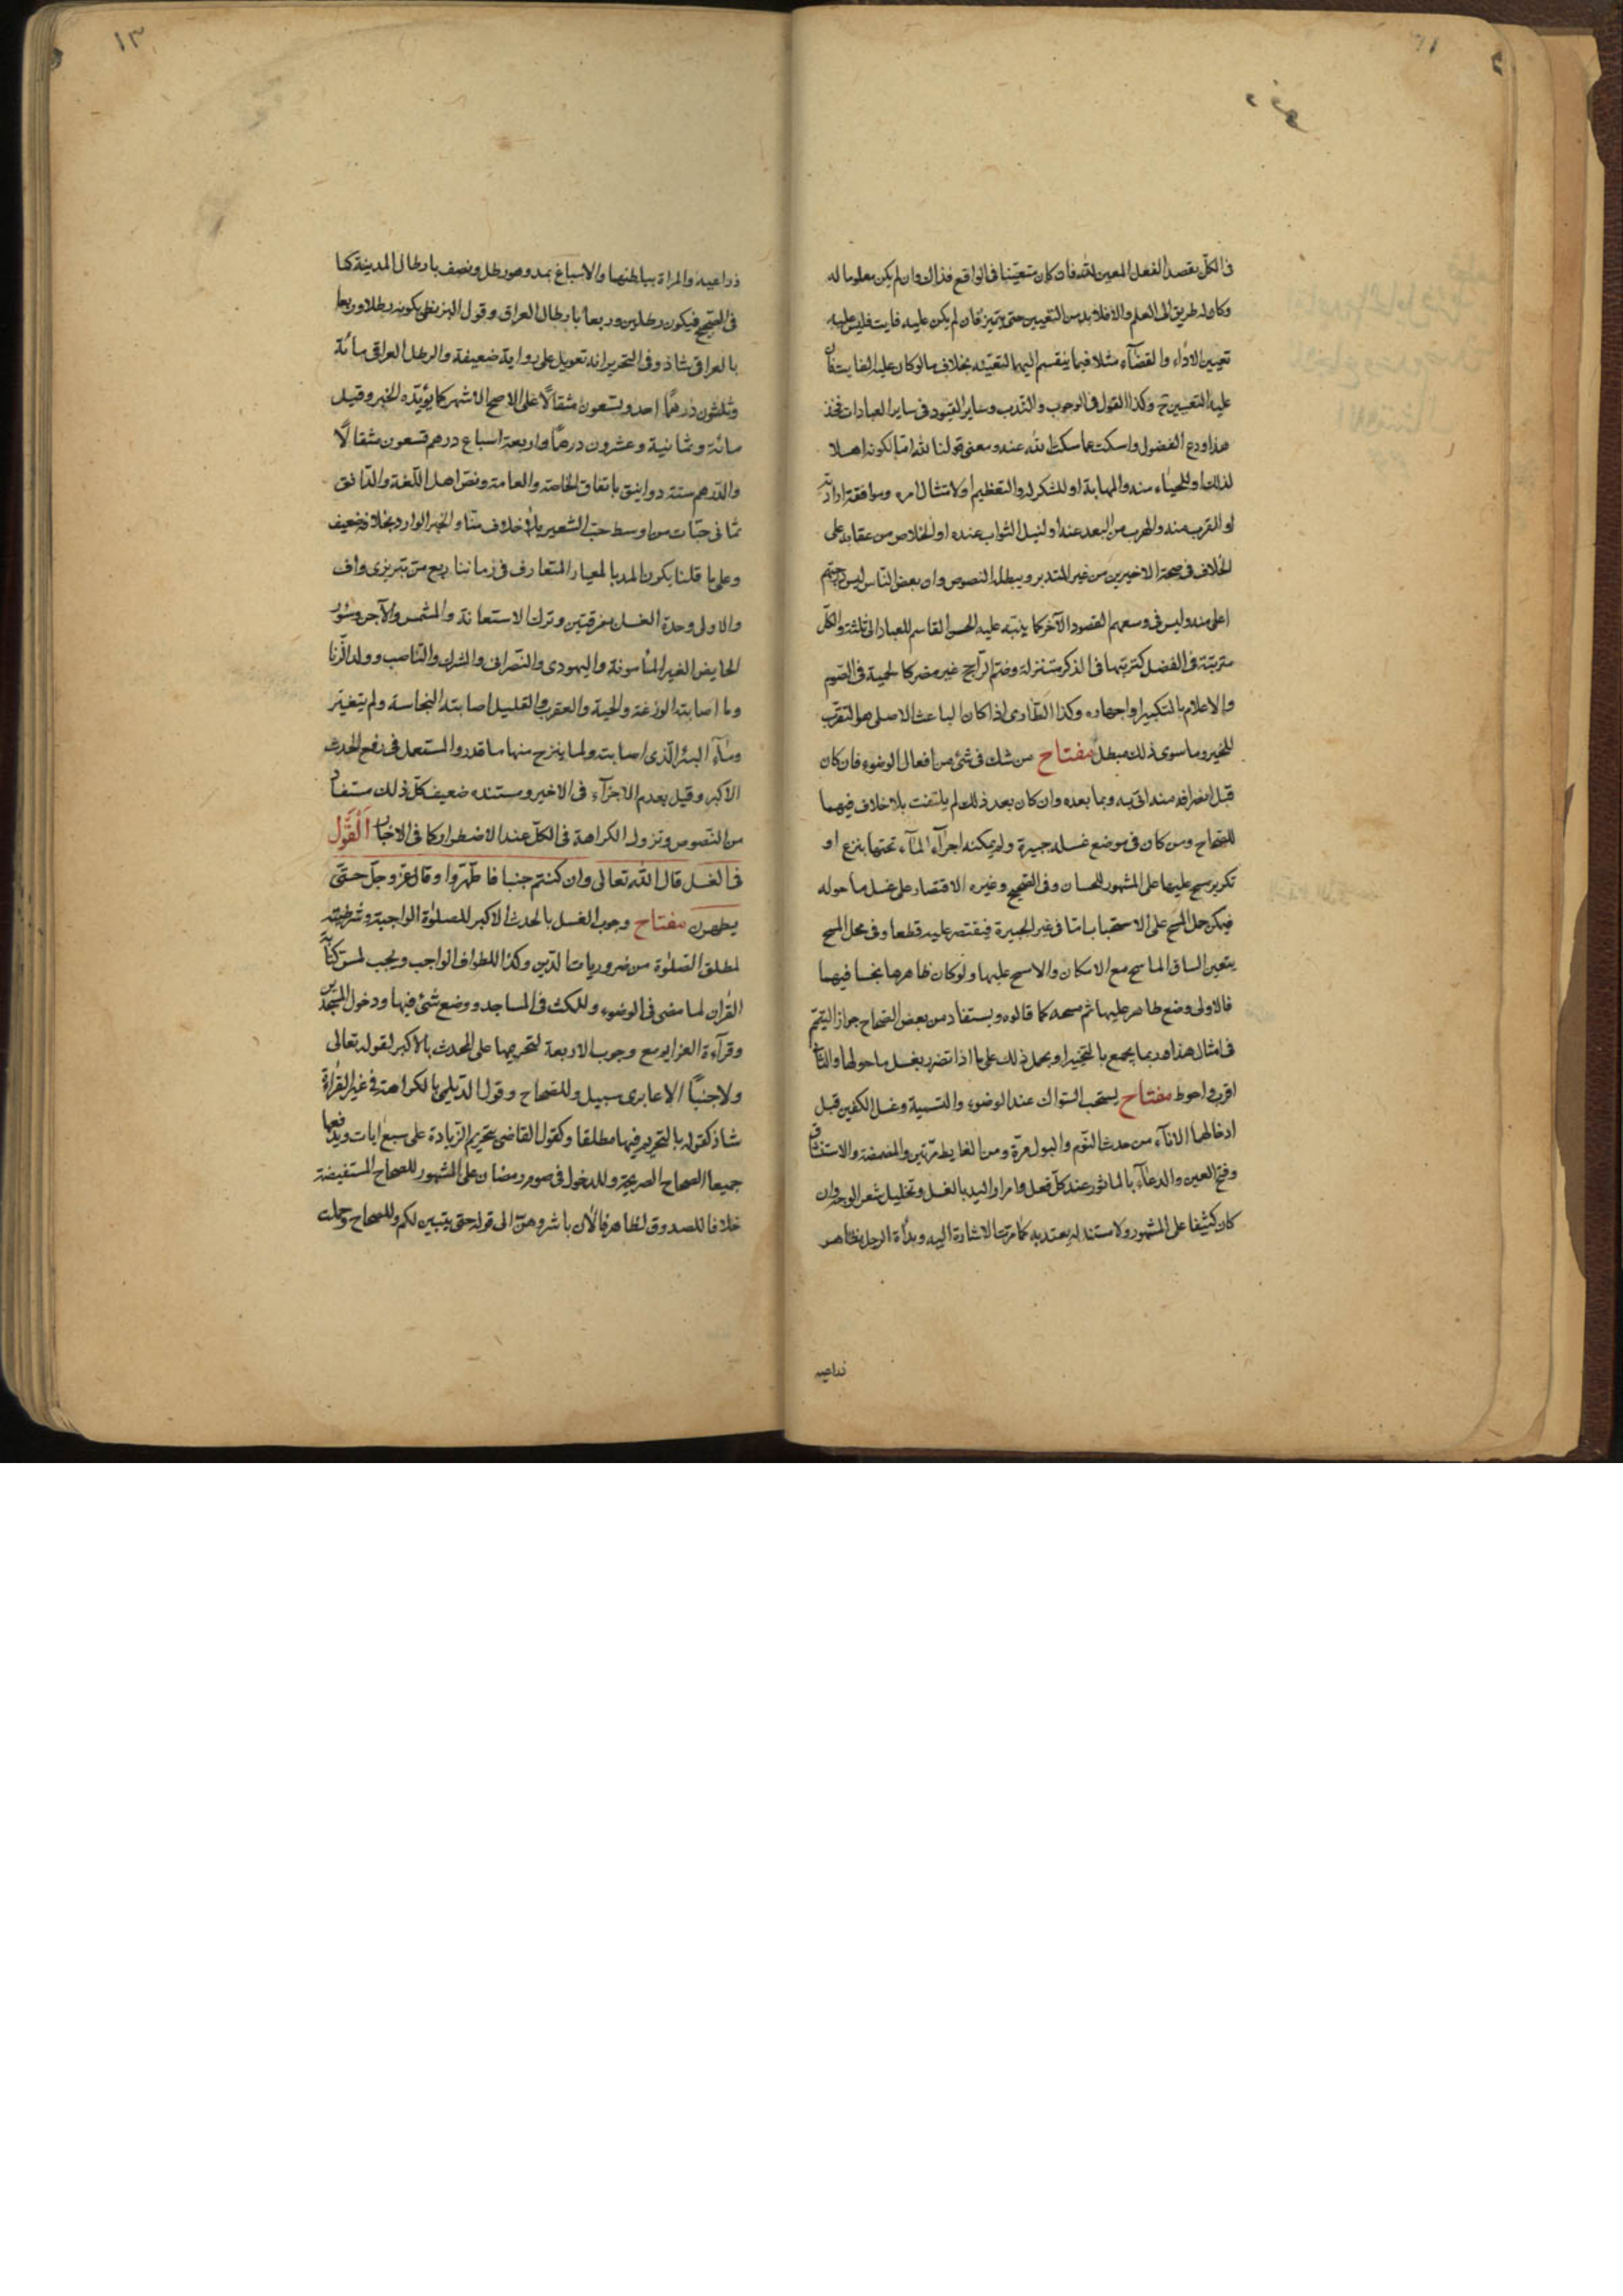 وقف
في الكلّ بقصد الفعل المعين لله فان كان متعيّنا في الواقع فذاك وان لم يكن معلوما له
وكان له طريق الى العلم والا فلا بد من التعيين حتى يتميز فان لم يكن عليه فايت فليس عليه
تعيين الاداء والقضاء مثلا فيما ينقسم اليهما لتعيّنه بخلاف ما لو كان عليه الفايت فان
عليه التعيين ح وكذا القول في الوجوب والندب وساير القيود في ساير العبادات فخذ
هذا ودع الفضول واسكت عما سكت الله عنه ومعنى قولنا لله اما لكونه اهلا
لذلك او للحياء منه والمهابة او للشكر له والتعظيم او لامتثال امره وموافقة ارادته
او القرب منه والهرب من البعد عنه او لنيل الثواب عنده او الخلاص من عقابه على
الخلاف في صحة الاخيرين من غير المتدبر ويبطله النصوص وان بعض الناس ليس درجتهم
اعلى منه وليس في وسعهم القصود الآخر كما ينبّه عليه الحسن القاسم للعباد الى ثلثة والكلّ
مترتبة في الفضل كترتبها في الذكر متنزلة وضم الراجح غير مضر كالحمية في الصوم
والاعلام بالتكبير واجهاره وكذا الطارى اذا كان الباعث الاصلى هو التقرب
للخبر وما سوى ذلك مبطل مفتاح من شك في شئ من افعال الوضوء فان كان
قبل انصرافه منه اتى به وبما بعده وان كان بعد ذلك لم يلتفت بلا خلاف فيهما
للصحاح ومن كان في موضع غسله جبيرة ولم يمكنه اجراء الماء تحتها بنزع او
تكرير مسح عليها على المشهور للحسان وفي الصحيح وغيره الاقتصار على غسل ما حوله
فيمكن حمل المسح على الاستحباب اما في غير الجبيرة فيقتصر عليه قطعا وفي محل المسح
يتعين الصاق الماسح مع الامكان والا مسح عليها ولو كان ظاهرها نجسا فيهما
فالاولى وضع طاهر عليها ثم مسحه كما قالوه ويستفاد من بعض الصحاح جواز التيمّم
في امثال هذا وربما يجمع بالتخيير او بحمل ذلك على ما اذا تضرر بغسل ما حولها والثانى
اقرب واحوط مفتاح يستحب السواك عند الوضوء والتسمية وغسل الكفين قبل
ادخالهما الاناء من حدث النوم والبول مرّة ومن الغايط مرّتين والمضمضة والاستنشاق
وفتح العين والدعاء بالماثور عند كلّ فعل وامرار اليد بالغسل وتخليل شعر الوجه وان
كان كثيفا على المشهور ولا مستند له يعتد به كما مرت الاشارة اليه وبدأة الرجل بظاهر
ذراعيه
١٣
ذراعيه والمراة بباطنهما والاسباغ بمد وهو رطل ونصف بارطال المدينة كما
في الصحيح فيكون رطلين وربعا بارطال العراق وقول البزنطى بكونه رطلا وربعا
بالعراقى شاذ وفي التحرير انه تعويل على رواية ضعيفة والرطل العراقى مائة
وثلثون درهما احد وتسعون مثقالا على الاصح الاشهر كما يؤيّده الخبر وقيل
مائة وثمانية وعشرون درهما واربعة اسباع درهم تسعون مثقالا
والدرهم ستة دوانيق باتفاق الخاصة والعامة ونصّ اهل اللّغة والدانق
ثمانى حبّات من اوسط حبّ الشعير بلا خلاف منّا والخبر الوارد بخلافه ضعيف
وعلى ما قلنا يكون المد بالمعيار المتعارف في زماننا ربع منّ تبريزى واف
والاولى وحدة الغسل بغرفتين وترك الاستعانة والمشمس والآجن وسؤر
الحايض الغير المأمونة واليهودى والنصرانى والمشرك والناصب وولد الزّنا
وما اصابته الوزغة والحية والعقرب والقليل اصابته النجاسة ولم يتغير
وماء البئر الّذى اصابته ولما ينزح منها ما قدر والمستعمل في رفع الحدث
الاكبر وقيل بعدم الاجزاء في الاخير ومستنده ضعيف كلّ ذلك مستفاد
من النّصوص وتزول الكراهة في الكلّ عند الاضطرار كما في الاخبار القَول
في الغسل قال الله تعالى وان كنتم جنبا فاطّهّروا وقال عزّ وجلّ حتى
يطهرن مفتاح وجوب الغسل بالحدث الاكبر للصلوة الواجبة وشرطيّته
لمطلق الصلوة من ضروريات الدّين وكذا للطواف الواجب ويجب لمس كتابة
القرآن لما مضى في الوضوء وللمكث في المساجد ووضع شئ فيها ودخول المسجدين
وقراءة العزايم مع وجوب الاربعة لتحريمها على المحدث بالاكبر لقوله تعالى
ولا جنبًا الا عابرى سبيل وللصحاح وقول الديلمى بالكراهة في غير القراءة
شاذ كقوله بالتحريم فيها مطلقا وكقول القاضى بتحريم الزيادة على سبع ايات ويدفعها
جميعا الصحاح الصريحة وللدخول في صوم رمضان على المشهور للصحاح المستفيضة
خلافا للصدوق لظاهر فالآن باشروهنّ الى قوله حتى يتبين لكم وللصحاح وحملت